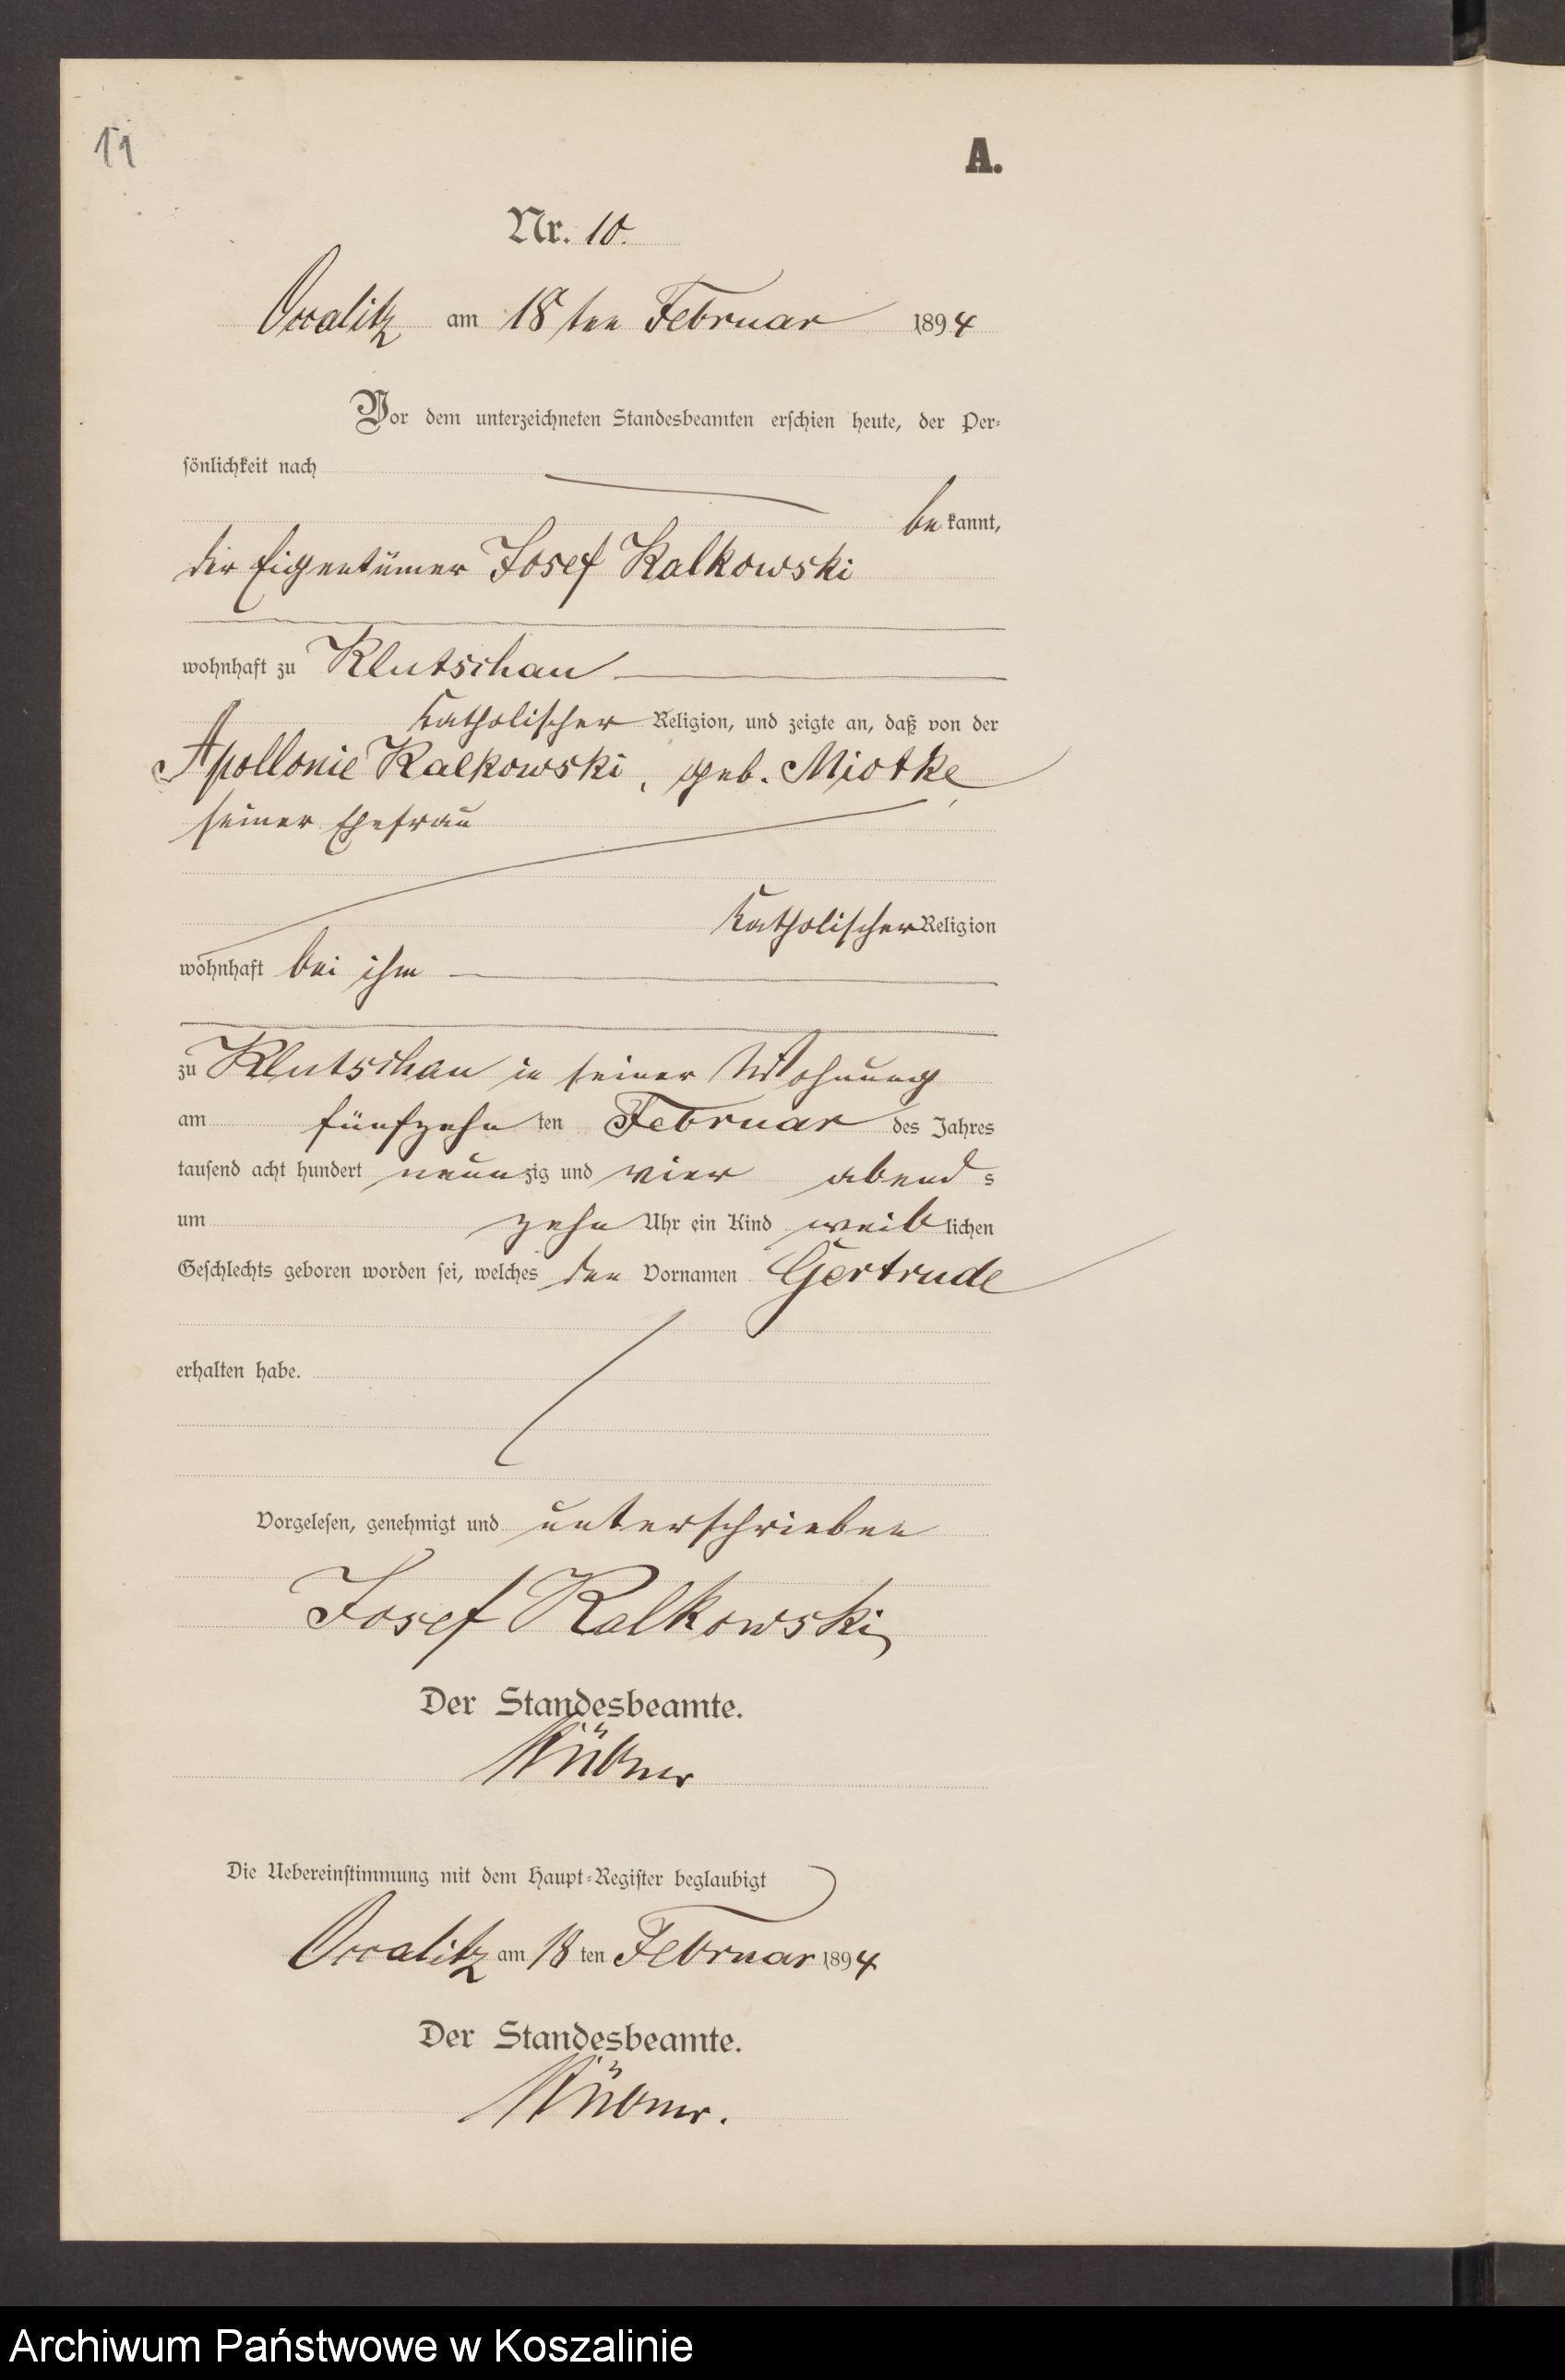 11
A.
Nr. 10.
Occalitz am 18ten Februar 1894
Vor dem unterzeichneten Standesbeamten erschien heute, der Per-
sönlichkeit nach
bekannt,
der Eigentümer Josef Kalkowski
wohnhaft zu Klutschau
katholischer Religion, und zeigte an, daß von der
Apollonie Kalkowski, geb. Miotke,
seiner Ehefrau
katholischer Religion
wohnhaft bei ihm
zu Klutschau in seiner Wohnung
am fünfzehn ten Februar des Jahres
tausend acht hundert neunzig und vier abends
um zehn Uhr ein Kind weiblichen
Geschlechts geboren worden sei, welches den Vornamen Gertrude
erhalten habe.
Vorgelesen, genehmigt und unterschrieben
Josef Kalkowski
Der Standesbeamte.
Die Uebereinstimmung mit dem Haupt-Register beglaubigt
Occalitz am 18 ten Februar 1894
Der Standesbeamte.
Archiwum Państwowe w Koszalinie